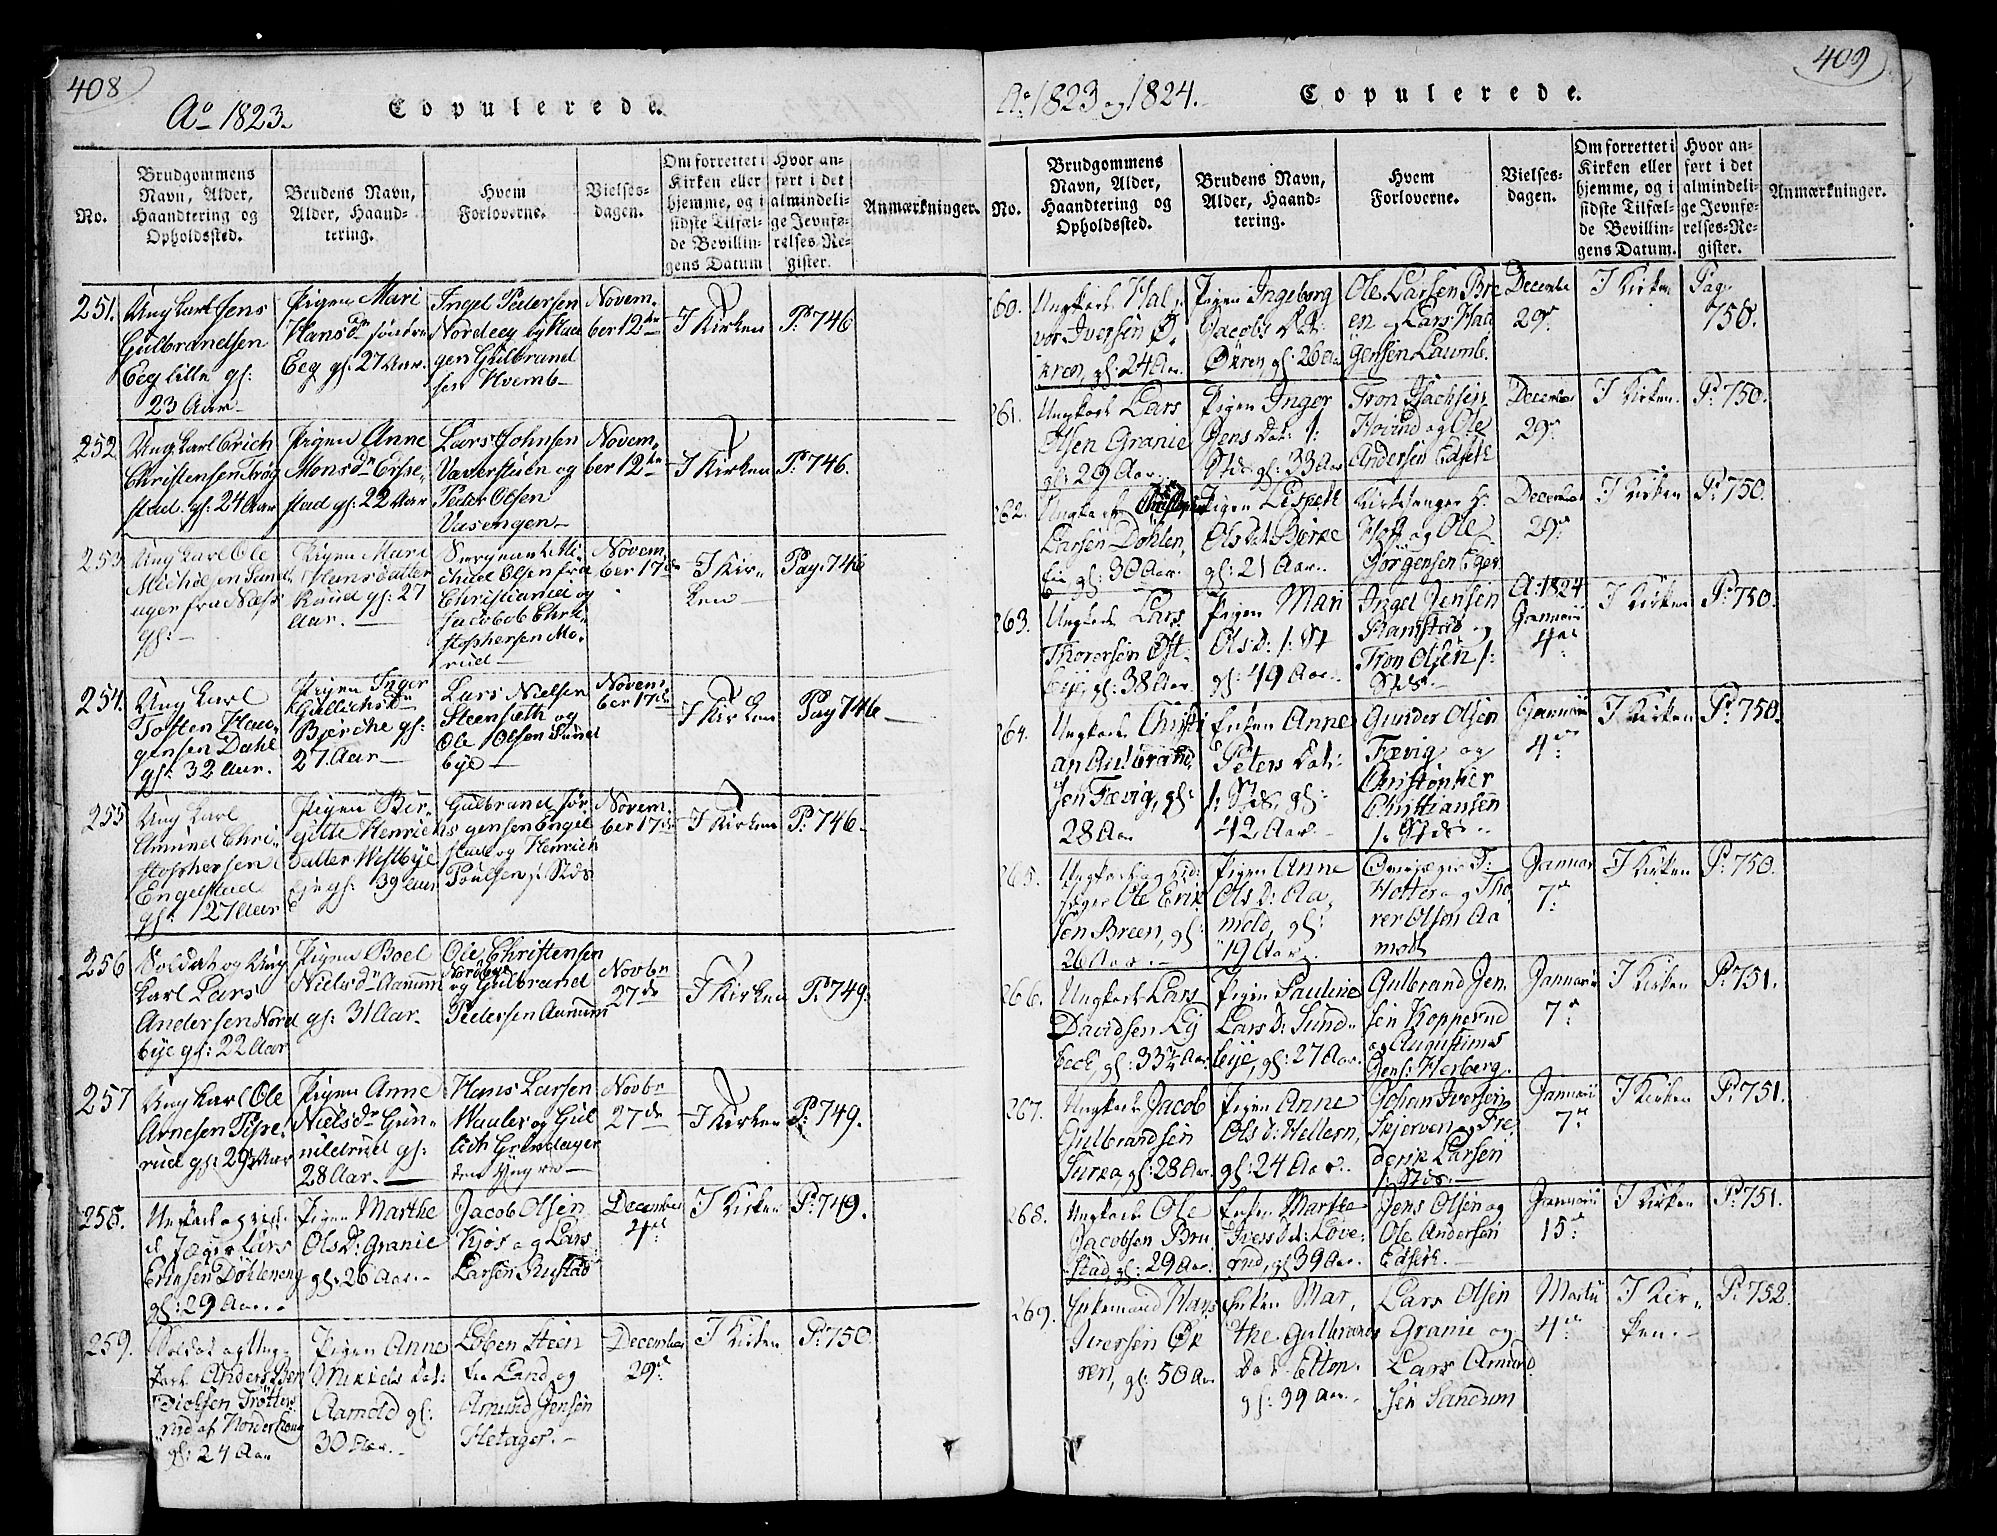 408
Ao 1823.
Copulerede.
No.
Brudgommens
Navn, Alder,
Haandtering og
Opholdssted.
Brudens Navn,
Alder, Haand-
tering.
Hvem
Forloverne.
Vielses-
dagen.
Om forrettet i
Kirken eller
hjemme, og i
sidste Tilfæl-
de Bevillin-
gens Datum
Hvor an-
ført i det
almindeli-
ge Jevnfø-
relses-Re-
gister.
Anmærkninger.
251.
Ung Karl Jens
Gulbrandsen
Eeg lille gl:
23 Aar
Pigen Mari
Hansdr søndre
Eeg gl: 27 Aar.
Ingel Pedersen
Nordeeg og Haa
gen Gulbrand
sen Hvemb
Novem-
ber 12te
I Kirken
P: 746
252
Ung Karl Erich
Christensen Trøg
stad gl: 24 Aar
Pigen Anne
Monsdr
stad gl: 22 Aar
Lars Johnsen
og
Peder Olsen
Vasengen
Novem-
ber 12te
I Kirken
P: 746.
253
Ung Karl Ole
Michelsen Sand
ager fra Næss
gl:
Pigen Mari
Hansdatter
Raud gl: 27
Aar.
Sergeant Mi-
chael Olsen fra
Christiania og
Jacob Chri-
stophersen Mo-
rud
Novem
ber 17de
I Kir-
ken
Pag. 746
254.
Ung Karl
Tosten Haa-
gensen Dahl
gl: 32 Aar.
Pigen Inger
Gullichsdr
Bjerche gl:
27 Aar
Lars Nielsen
Steensæth og
Ole Olsen Sund
bye
Novem
ber 17de
I Kirken
Pag 746
255
Ung Karl
Amund Chri-
stophersen
Engelstad
gl: 27 Aar
Pigen Ber-
gitte Henrichs
datter Westbye
gl: 39 Aar
Gulbrand Jør
gensen Engel
stad og Henrich
Poulsen j: Stds
Novem-
ber 17de
I Kirken
P: 746.
256
Soldat og Ung
Karl Lars
Andersen Nord
bye gl: 22 Aar
Pigen Boel
Nielsdr Aanum
gl: 31 Aar
Ole Christensen
Nordbye
og Gulbrand
Pedersen Aanum
Novbr
27de
I Kirken
P: 749.
257
Ung Karl Ole
Arnesen Pipe-
rud gl: 29 Aar
Pigen Anne
Nielsdr Gun-
nildrud gl:
28 Aar.
Hans Larsen
og Gul
Grindager
Novbr
27de
I Kirken
P: 749.
258.
Ungkarl og
Jæger Lars
Eriksen Døhleneng
gl: 29 Aar.
Pigen Marthe
Ols D: Granie
gl: 26 Aar.
Jacob Olsen
Kjøs og Lars
Larsen Rustad
December
4de
I Kirken
P: 749.
259.
Soldat og Ung-
karl Anders Ben
dictsen Trøtte
rud af Norderhoug
gl: 24 Aar
Pigen Anne
Mikkels Dat:
Aamold gl:
30 Aar.
Loben Steen
Land og
Amund Jensen
Hetager.
December
29de
I Kirken
P: 750.
409
Ao 1823 og 1824.
Copulerede.
No.
Brudgommens
Navn, Alder,
Haandtering og
Opholdssted.
Brudens Navn,
Alder, Haand-
tering.
Hvem
Forloverne.
Vielses-
dagen.
Om forrettet i
Kirken eller
hjemme, og i
sidste Tilfæl-
de Bevillin-
gens Datum.
Hvor an-
ført i det
almindeli-
ge Jevnfø-
relses-Re-
gister.
Anmærkninger.
260.
Ungkarl Hal-
vor Iversen Ø-
kren, gl: 24 Aar.
Pigen Ingeborg
Jacobs Dat:
Økren, gl: 26 Aar
Ole Larsen Bre
en og Lars Haa
gensen Laumb.
December
29de
I Kirken
Pag.
750.
261.
Ungkarl Lars
Olsen Granie
gl: 29 Aar
Pigen Inger
Jens Dat: j:
Stds gl: 33 Aar
Tron
Hovind og Ole
Andersen Edseth
December
29de
I Kirken.
P: 750.
262.
Ungkarl Christopher
Larsen Døhlen,
gl: 30 Aar.
Pigen Lisbeth
Ols Dat: Bierke
gl: 21 Aar.
Kirkesanger H:
Hoff og Ole
Jørgensen Eger
December
29de
I Kirken
P: 750.
263.
Ungkarl Lars
Thoresen Øst-
bye, gl: 38 Aar.
Pigen Mari
Ols D: j: St
gl: 49 Aar.
Ingel Jensen
Ramstad og
Tron Olsen j:
Stds.
A: 1824
Januarii
4de
I Kirken
P: 750.
264.
Ungkarl Christi
an Gulbrand
sen Fævig, gl:
28 Aar
Enken Anne
Peters Dat:
j: Stds, gl:
42 Aar.
Gunder Olsen
Fævig og
Christopher
Christiansen
j: Stds.
Januarii
4de
I Kirken
P: 750.
265.
Ungkarl og rid:
Jæger Ole Erik
sen Breen, gl:
26 Aar.
Pigen Anne
Ols D: Aa-
mold, gl:
19 Aar.
Overjæger D:
Hotter og Tho
rer Olsen Aa
modt
Januar
7de
I Kirken
P: 750.
266.
Ungkarl Lars
Davidsen Ly
beck, gl: 33¾ Aar
Pigen Pauline
Lars D: Sund-
bye, gl: 27 Aar.
Gulbrand Jen
sen Kopperud
og Augustinus
Jens: Herberg.
Januarii
7de
I Kirken
P: 751.
267.
Ungkarl Jacob
Gulbrandsen
Surka gl: 28 Aar.
Pigen Anne
Ols D: Hellern,
gl: 24 Aar.
Johan Iversen
Skjerven og Fre
derik Larsen
j: Stds.
Januarii
7de
I Kirken
P: 751.
268.
Ungkarl Ole
Jacobsen Bru
stad, gl: 29 Aar.
Enken Marthe
Ivers Dat: Løve-
rud, gl: 39 Aar.
Jens Olsen og
Ole Andersen
Edseth.
Januarii
15de
I Kirken
P: 751.
269.
Enkemand Hans
Iversen Øk
ren, gl: 50 Aar
Enken Mar-
the Gulbrands
Dat: Etton
gl: 39 Aar.
Lars Olsen
Granie og
Lars Amund
sen Sandum
Martii
4de
I Kir-
ken.
P: 752.